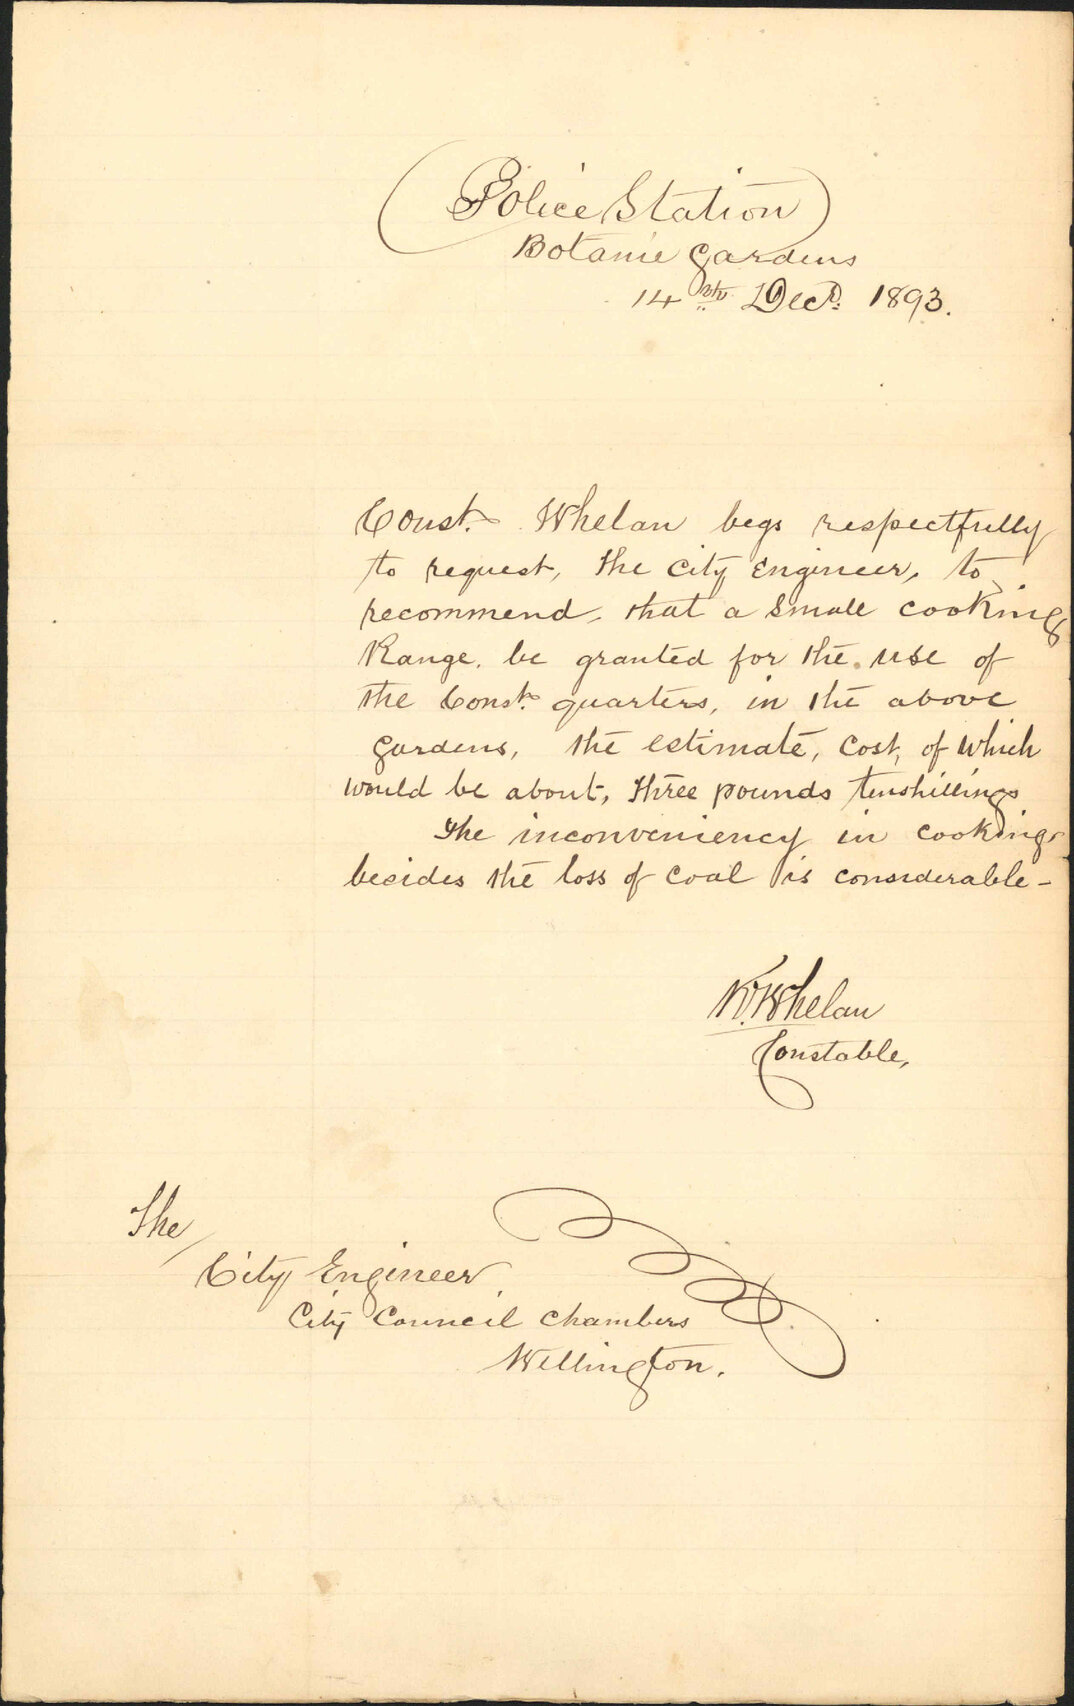 Police Station
Botanic Gardens
14th Decr. 1893.
Const. Whelan begs respectfully
to request, the City Engineer, to
recommend, that a small cooking
Range. be granted for the use of
the Const. quarters, in the above
gardens, the estimate, cost, of which
would be about, three pounds tenshillings
The inconveniency in cooking
besides the loss of coal is considerable -
W. Whelan
Constable,
The
City Engineer
City Council Chambers
Wellington.